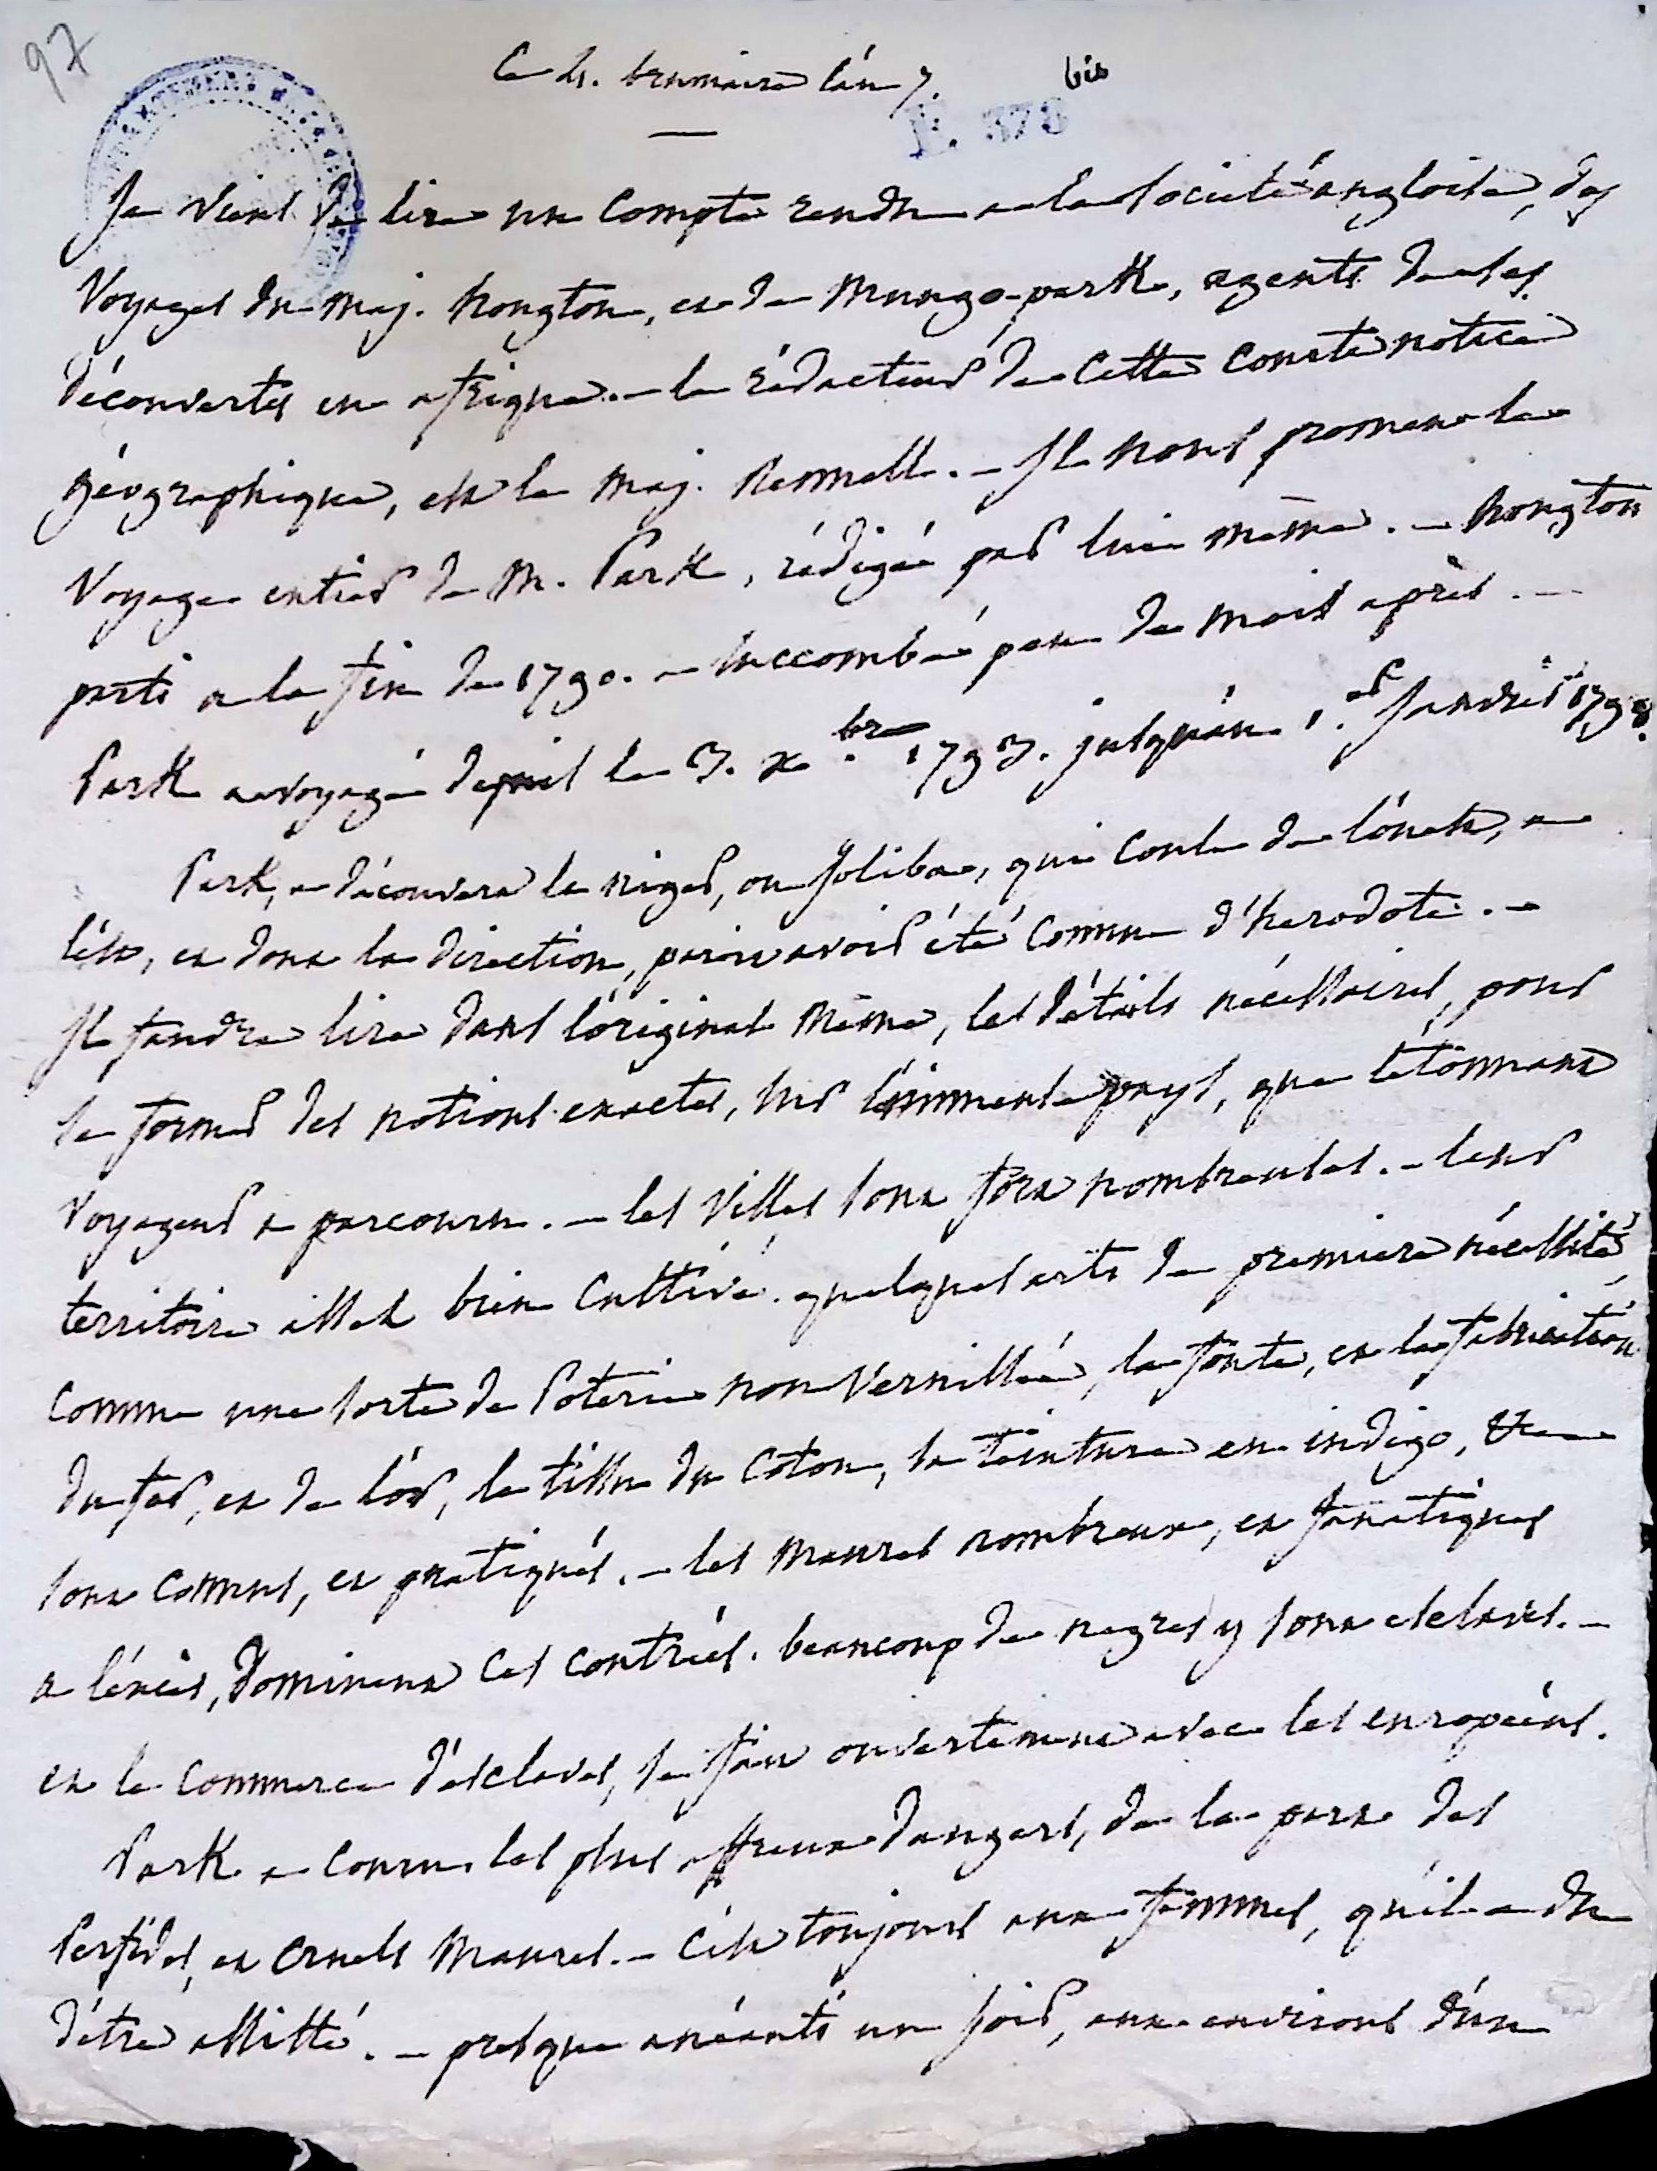 97
Ce 4. brumaire l'an 7.
bis
E. 379
Je viens de lire un compte rendu a la société angloise, des
Voyages du maj. hougton, et de Mungo-park, agents de ses
découvertes en afrique. — le rédacteur de cette courte notice
géographique, est le maj. Rennell. — Il nous promet le
Voyage entier de M. Park, rédigé par lui même. — hougton
parti a la fin de 1790. — succombé peu de mois après. —
Park a voyagé depuis le 3. xbre 1793. jusqu'au 1.er Janvier 1798.
Park, a découvert le niger, ou Joliba, qui coule de l'ouest, a
l'est, et dont la direction, paroit avoir été connue d'herodote. —
Il faudra lire dans l'original même, les détails nécessaires, pour
se former des notions exactes, sur l'immense pays, que l'étonnant
Voyageur a parcouru. — les Villes sont fort nombreuses. — leur
territoire assez bien cultivé. quelques arts de premiere nécessité,
comme une sorte de Poterie non Vernissée, la fonte, et la fabrication
du fer, et de l'or, le tissu du coton, la teinture en indigo, &c
sont connus, et pratiqués. — les maures nombreux, et fanatiques
a l'excès, dominent ces contrées. beaucoup de negres y sont esclaves. —
et le commerce d'esclaves, se fait ouvertement avec les européens.
Park a couru les plus affreux dangers, de la part des
Perfides, et cruels maures. — C'est toujours aux femmes, qu'il a du
d'être assisté. — presque anéanti un soir, aux environs d'une